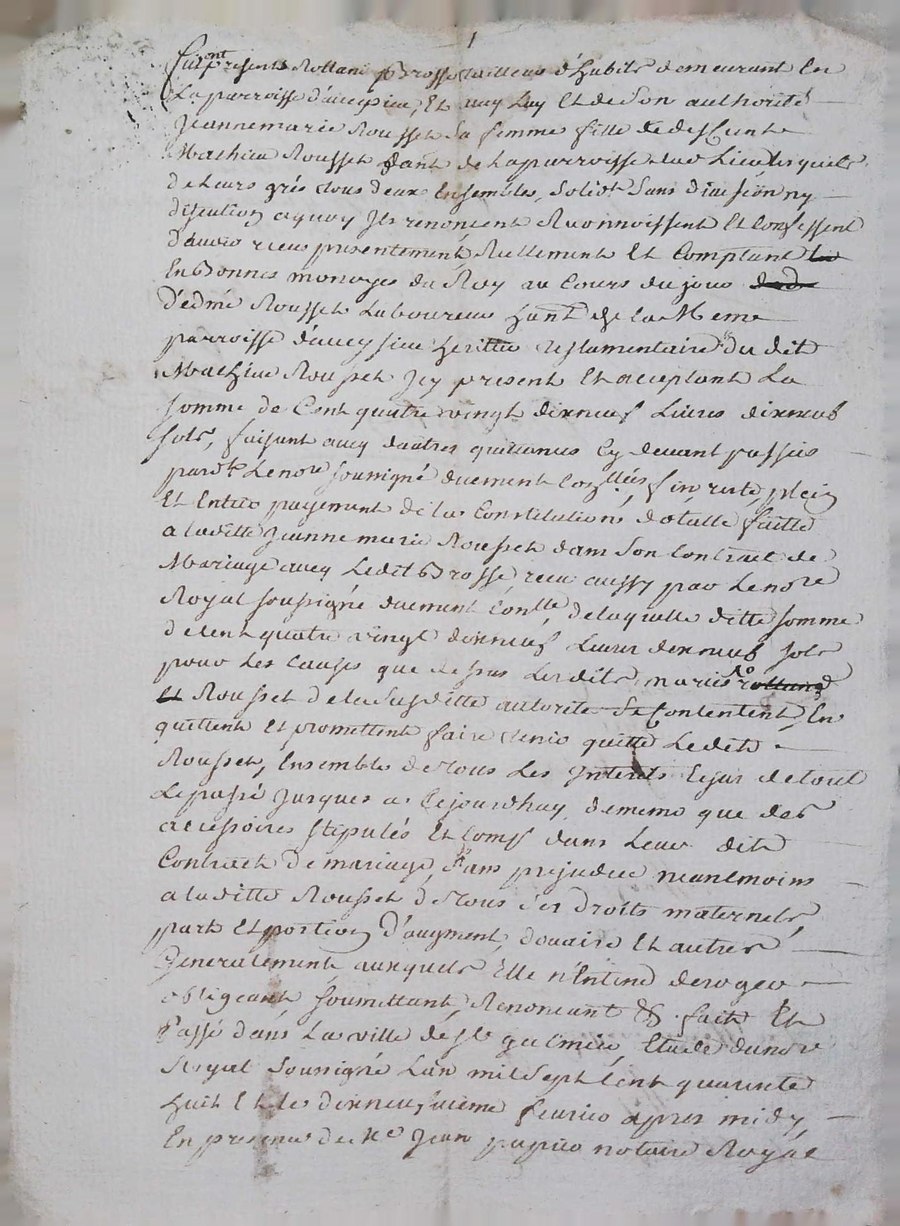 1
Furent presents Rolland Brosse tailleur d'habits demeurant En
La parroisse d'aveysieu, Et avey Luy Et de Son authorité
Jeanne marie Rousset Sa femme fille de deffunt
Mathieu Rousset hant de La parroisse dud Lieu, Lesquels
de Leurs grés tous deux Ensembles, Solid.t Sans division ny
discution aquoy Ils renoncent Reconnoissent Et Confessent
d'avoir receu presentement, Reellement Et Comptant
En Bonnes monoyes du Roy au Cours du jour
d'edmé Rousset Laboureur hant de la Meme
parroisse d'aveysieu heritier testamentaire du dit
Mathieu Rousset Icy present Et acceptant La
somme de Cent quatre vingt dixneuf Livres dixneuf
sols, faisant avey dautres quittances Cy devant passées
pard.t Le no.re soussigné duement Con.llées, fin reste, plein
Et Entier payement de la Constitution dotalle faitte
a laditte Jeanne marie Rousset dans Son Contract de
Mariage avey Ledit Brosse receu aussy par Le no.re
Royal soussigné duement Con.llé, de laquelle ditte somme
de Cent quatre vingt dixneuf Livres dixneuf sols
pour Les Causes que dessus Lesdits mariés
Rousset de la Susditte autorité Se Contentent, En
quittent Et promettent faire tenir quitte Ledit
Rousset, Ensemble de tous Les Interets Cejus de tout
Le passé Jusques a Cejourdhuy, de meme que des
accessoires stipulés Et Comp.s dans Leur dit
Contract de mariage, Sans prejudice neantmoins
a laditte Rousset de tous Ses droits maternels,
part Et portion d'augment, douaire Et autres
Generalement auxquels Elle n'Entend deroger
obligeant, soumettant, Renoncant &. fait Et
Passé dans La ville de S.t galmier, Etude du no.re
Royal Soussigné Lan mil Sept Cent quarante
huit Et le dixneuvieme fevrier apres midy,
En presence de M.e Jean papier notaire Royal